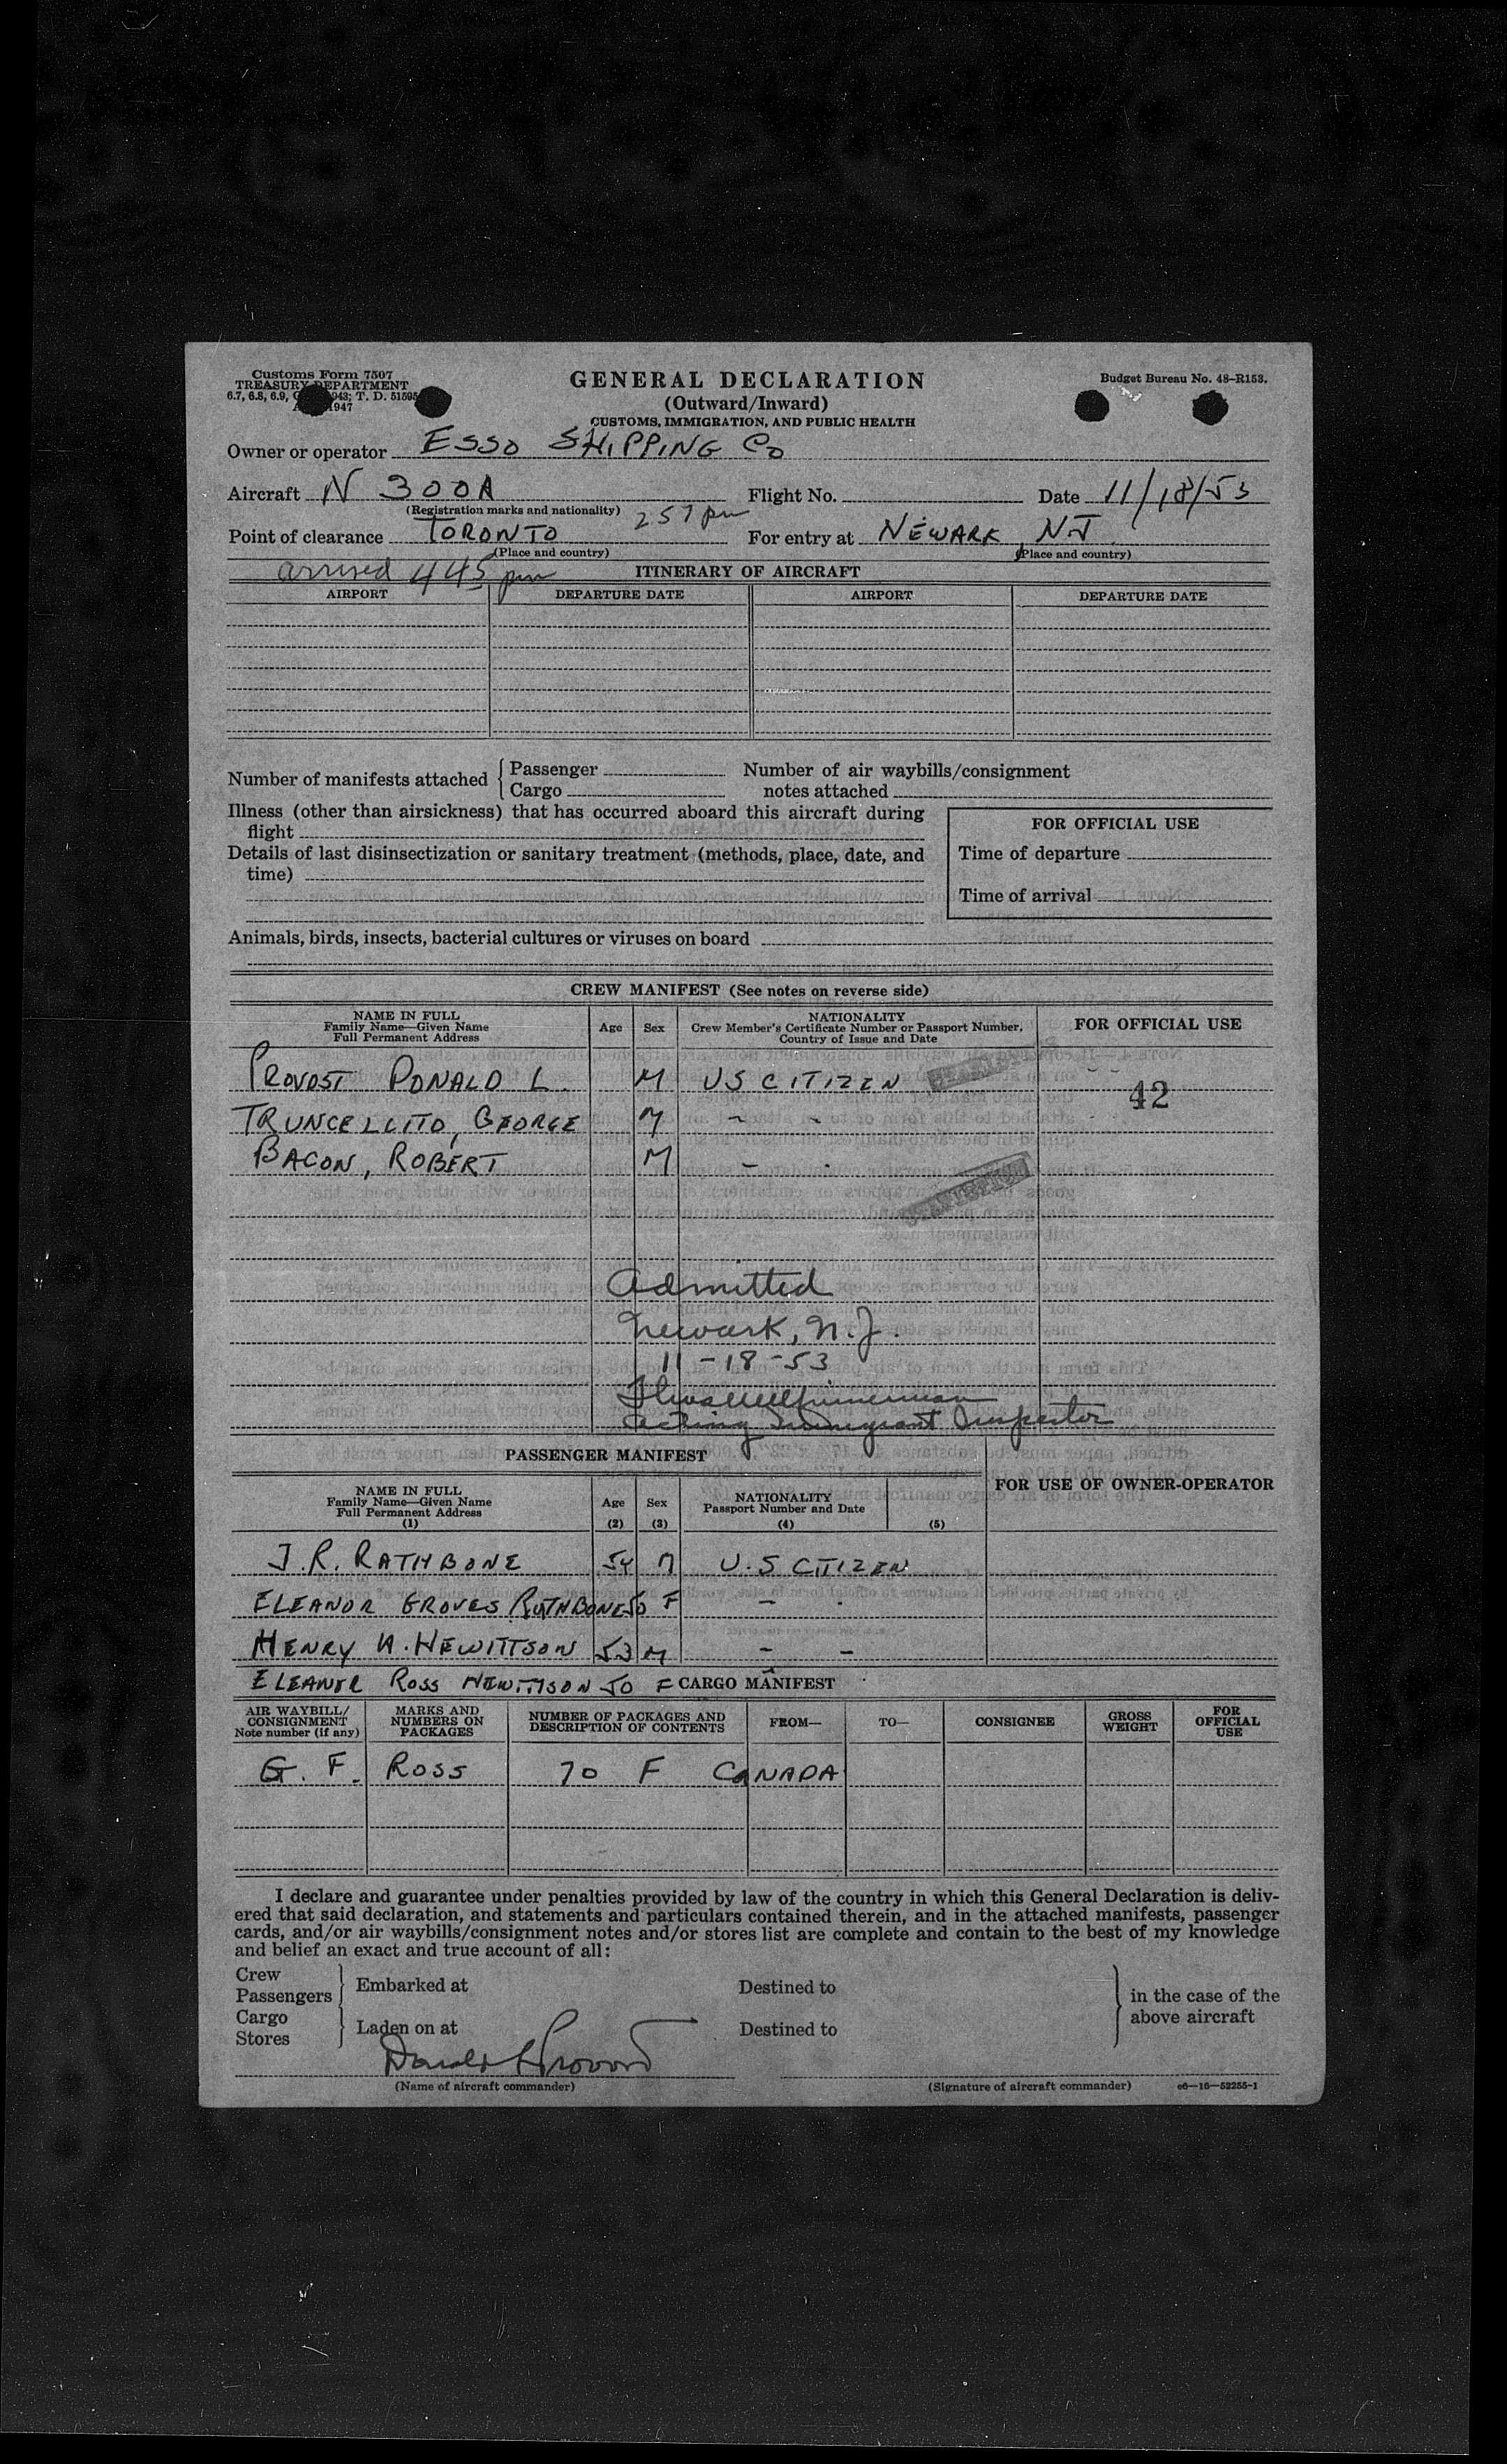 Customs Form 7507
TREASURY DEPARTMENT
6.7, 6.8, 6.9, 943; T. D. 51595
1947
GENERAL DECLARATION
(Outward/Inward)
CUSTOMS, IMMIGRATION, AND PUBLIC HEALTH
Budget Bureau No. 48-R153.
Owner or operator ESSO SHIPPING Co
Aircraft N 300A Flight No. Date 11/18/53
(Registration marks and nationality)
Point of clearance TORONTO 257 pm For entry at NEWARK, NJ
(Place and country) (Place and country)
arrived 445 pm
ITINERARY OF AIRCRAFT
AIRPORT DEPARTURE DATE AIRPORT DEPARTURE DATE
Number of manifests attached { Passenger Number of air waybills/consignment
Cargo notes attached
Illness (other than airsickness) that has occurred aboard this aircraft during
flight
Details of last disinsectization or sanitary treatment (methods, place, date, and
time)
FOR OFFICIAL USE
Time of departure
Time of arrival
Animals, birds, insects, bacterial cultures or viruses on board
CREW MANIFEST (See notes on reverse side)
NAME IN FULL
Family Name—Given Name
Full Permanent Address
Age Sex
NATIONALITY
Crew Member's Certificate Number or Passport Number,
Country of Issue and Date
FOR OFFICIAL USE
PROVOST DONALD L. M US CITIZEN
42
TRUNCELLITO, GEORGE M - -
BACON, ROBERT M - -
Admitted
Newark, N.J.
11-18-53
Acting Immigrant Inspector
PASSENGER MANIFEST
FOR USE OF OWNER-OPERATOR
NAME IN FULL
Family Name—Given Name
Full Permanent Address
(1)
Age
(2)
Sex
(3)
NATIONALITY
Passport Number and Date
(4) (5)
J. R. RATHBONE 54 M U.S CITIZEN
ELEANOR GROVES RATHBONE 50 F - -
HENRY W. HEWITTSON 53 M - -
ELEANER ROSS HEWITTSON 50 F CARGO MANIFEST
AIR WAYBILL/
CONSIGNMENT
Note number (if any)
MARKS AND
NUMBERS ON
PACKAGES
NUMBER OF PACKAGES AND
DESCRIPTION OF CONTENTS
FROM—
TO—
CONSIGNEE
GROSS
WEIGHT
FOR
OFFICIAL
USE
G. F. ROSS 70 F CANADA
I declare and guarantee under penalties provided by law of the country in which this General Declaration is deliv-
ered that said declaration, and statements and particulars contained therein, and in the attached manifests, passenger
cards, and/or air waybills/consignment notes and/or stores list are complete and contain to the best of my knowledge
and belief an exact and true account of all:
Crew
Passengers } Embarked at Destined to
Cargo
Stores } Laden on at Destined to
} in the case of the
above aircraft
Donald L Provost
(Name of aircraft commander) (Signature of aircraft commander) c6—16—52255-1